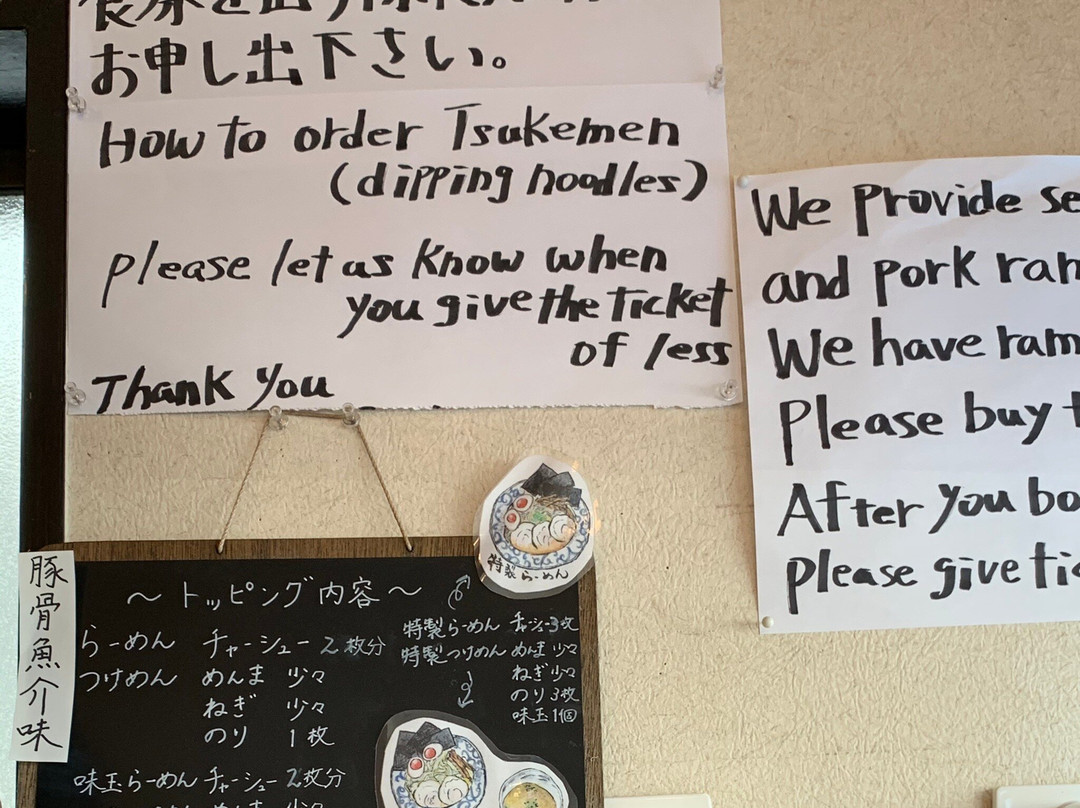 お申し出下さい。
How to order Tsukemen
(dipping noodles)
please let us know when
you give the ticket
of less
Thank you
We provide se
and pork ram
We have ram
Please buy t
After you bo
please give tic
豚骨魚介味
～トッピング内容～
らーめん チャーシュー 2枚分
つけめん めんま 少々
ねぎ 少々
のり 1枚
味玉らーめん チャーシュー 2枚分
めんま 少々
特製らーめん チャーシュー3枚
特製つけめん めんま 少々
ねぎ 少々
のり 3枚
味玉1個
特製らーめん